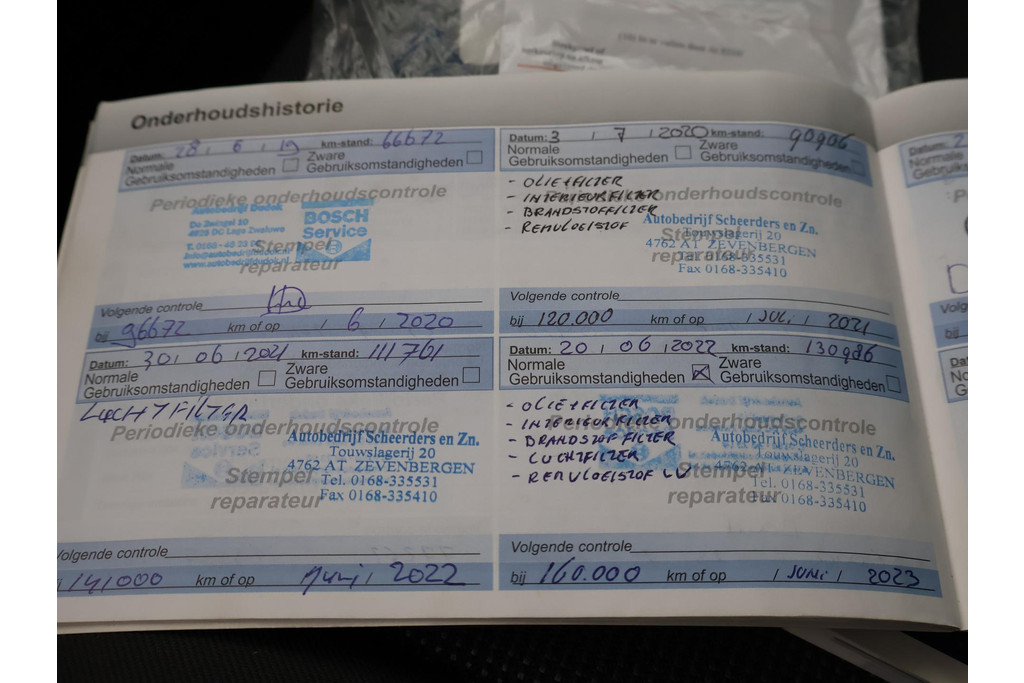 Onderhoudshistorie
Datum: 28 / 6 / 19 km-stand: 66672
Normale Gebruiksomstandigheden
Zware Gebruiksomstandigheden
Periodieke onderhoudscontrole
Autobedrijf Dudok
De Zwingel 10
4926 DC Lage Zwaluwe
BOSCH
Service
Stempel
reparateur
Volgende controle
bij 96672 km of op / 6 / 2020
Datum: 3 / 7 / 2020 km-stand: 90906
Normale Gebruiksomstandigheden
Zware Gebruiksomstandigheden
Periodieke onderhoudscontrole
- OLIE+FILTER
- INTERIEURFILTER
- BRANDSTOFFILTER
- REMVLOEISTOF
Autobedrijf Scheerders en Zn.
Touwslagerij 20
4762 AT ZEVENBERGEN
Tel. 0168-335531
Fax 0168-335410
Stempel
reparateur
Volgende controle
bij 120.000 km of op / JULI / 2021
Datum: 30 / 06 / 2021 km-stand: 111761
Normale Gebruiksomstandigheden
Zware Gebruiksomstandigheden
LUCHTFILTER
Periodieke onderhoudscontrole
Autobedrijf Scheerders en Zn.
Touwslagerij 20
4762 AT ZEVENBERGEN
Tel. 0168-335531
Fax 0168-335410
Stempel
reparateur
Volgende controle
141,000 km of op Juni / 2022
Datum: 20 / 06 / 2022 km-stand: 130986
Normale Gebruiksomstandigheden
Zware Gebruiksomstandigheden
Periodieke onderhoudscontrole
- OLIE+FILTER
- INTERIEUR FILTER
- BRANDSTOF FILTER
- LUCHTFILTER
- REMVLOEISTOF
Autobedrijf Scheerders en Zn.
Touwslagerij 20
4762 AT ZEVENBERGEN
Tel. 0168-335531
Fax 0168-335410
Stempel
reparateur
Volgende controle
bij 160.000 km of op / JUNI / 2023